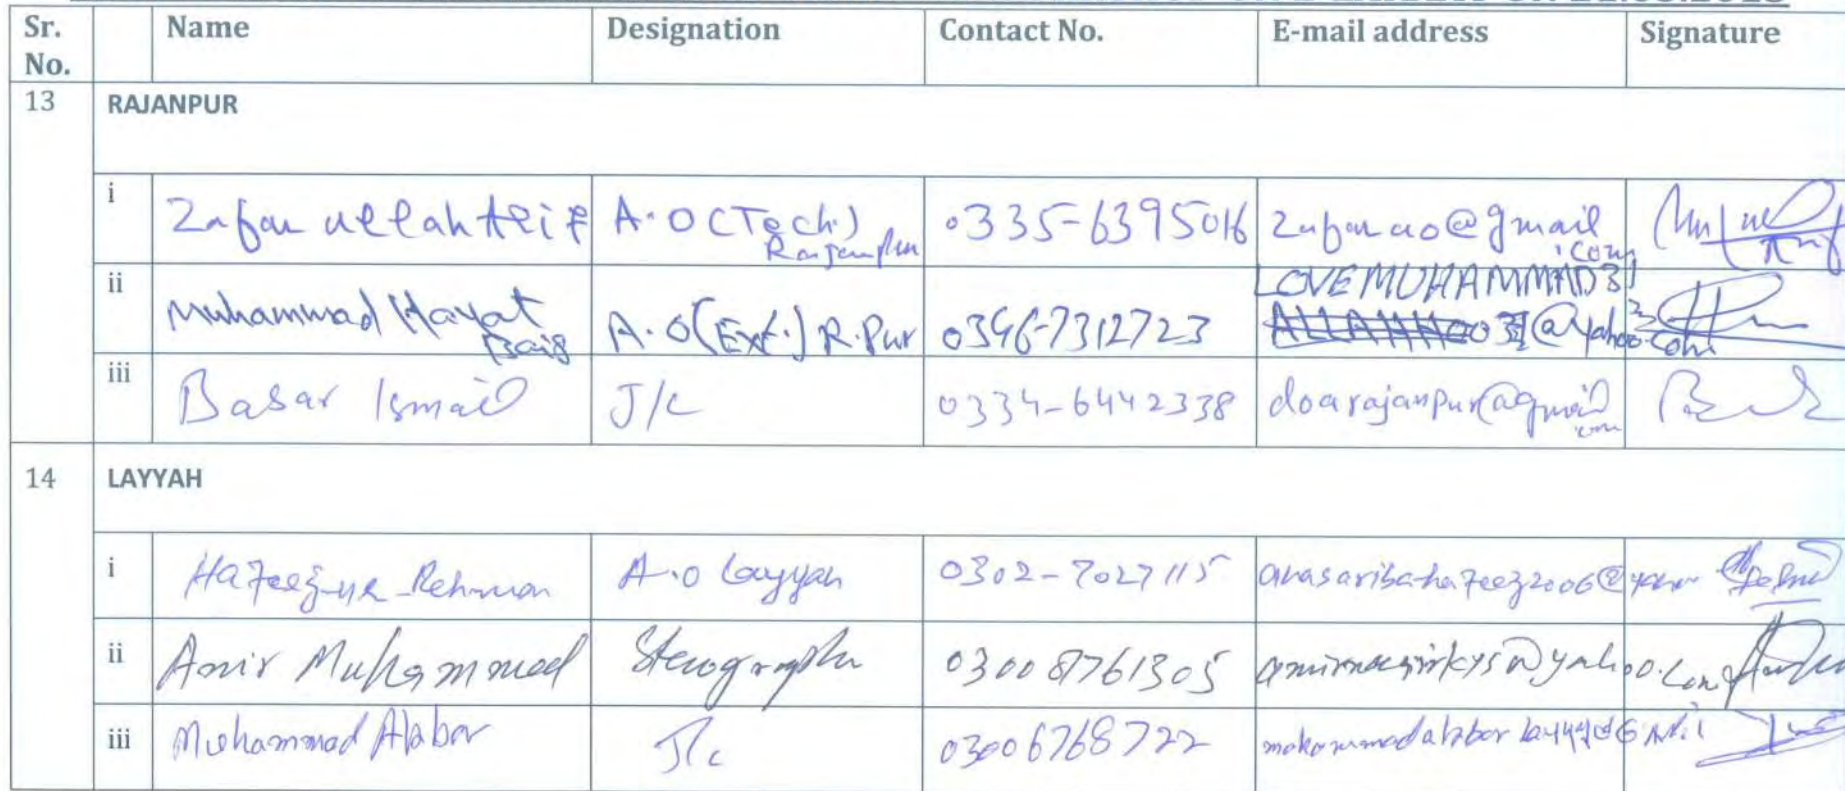 Sr. No. Name Designation Contact No. E-mail address Signature
13 RAJANPUR
i Zafar ullah A.O (Tech.) Rajanpur 0335-6395016 zafarao@gmail.com
ii Muhammad Hayat Baig A.O (Ext.) R.Pur 0346-7312723 LOVEMUHAMMAD3 @yahoo.com
iii Basar Ismail J/C 0334-6442338 doarajanpur@gmail.com
14 LAYYAH
i Hafeez-ur-Rehman A.O Layyah 0302-7027115
ii Amir Muhammad Stenographer 03008761305
iii Muhammad Akbar J/c 03006768722